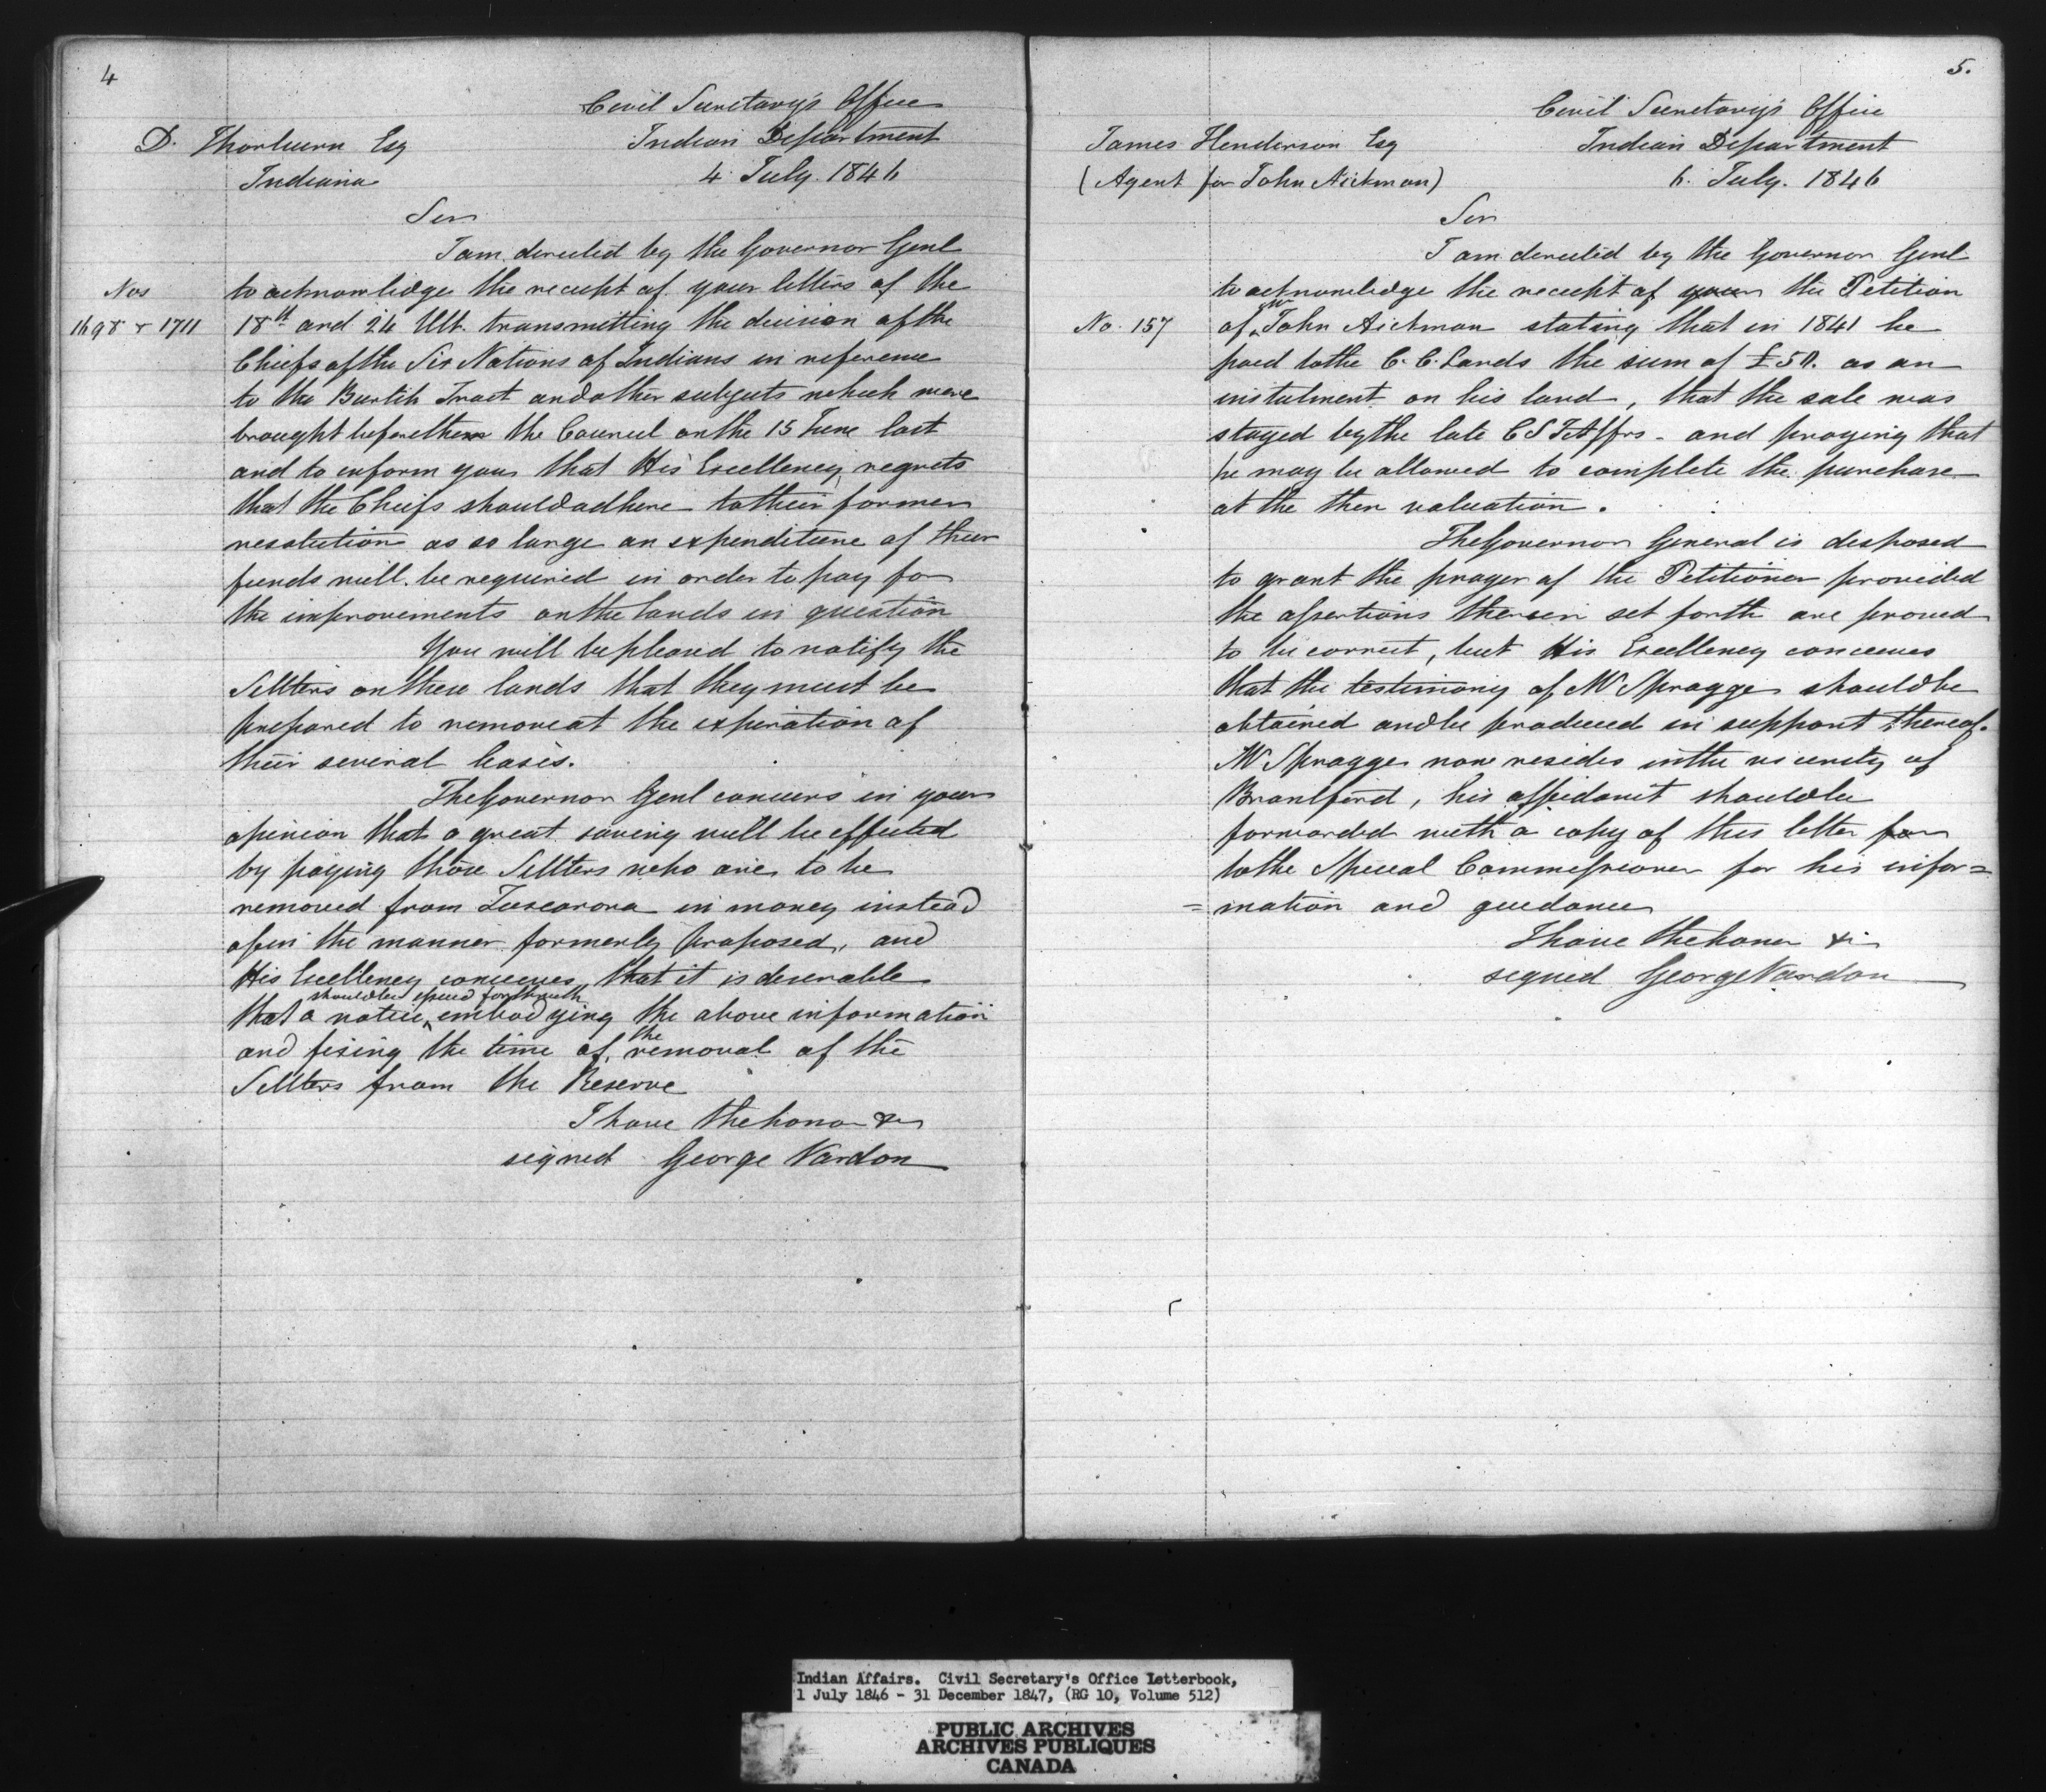 4
Civil Secretary's Office
D. Thorburn Esq
Indian Department
Indiana
4 July. 1846
Sir
I am directed by the Governor Genl
Nos
to acknowledge the receipt of your letters of the
1698 & 1711
18th and 24 Ult. transmitting the decision of the
Chiefs of the Six Nations of Indians in reference
to the Burtch Tract and other subjects which were
brought before them the Council on the 15 June last
and to inform you that His Excellency regrets
that the Chiefs should adhere to their former
resolution as so large an expenditure of their
funds will be required in order to pay for
the improvements on the lands in question
You will be pleased to notify the
Settlers on these lands that they must be
prepared to remove at the expiration of
their several leases.
The Governor Genl concurs in your
opinion that a great saving will be effected
by paying those Settlers who are to be
removed from Tuscarora in money instead
of in the manner formerly proposed, and
His Excellency conceives that it is desirable
should be issued forthwith
that a notice embodying the above information
and fixing the time of the removal of the
Settlers from the Reserve
I have the honor &c
signed George Vardon
5.
Civil Secretary's Office
James Henderson Esq
Indian Department
(Agent for John Aickman)
6. July. 1846
Sir
I am directed by the Governor Genl
to acknowledge the receipt of your the Petition
No. 157
of Mr John Aickman stating that in 1841 he
paid to the C. C. Lands the sum of £50. as an
instalment on his land, that the sale was
stayed by the late C S I Affrs - and praying that
he may be allowed to complete the purchase
at the then valuation.
The Governor General is disposed
to grant the prayer of the Petitioner provided
the assertions therein set forth are proved
to be correct, but His Excellency conceives
that the testimony of Mr Spragge should be
obtained and be produced in support thereof.
Mr Spragge now resides in the vicinity of
Brantford, his affidavit should be
forwarded with a copy of this letter for
to the Special Commissioner for his infor=
=mation and guidance
I have the honor &c
signed George Vardon
Indian Affairs. Civil Secretary's Office Letterbook,
1 July 1846 - 31 December 1847, (RG 10, Volume 512)
PUBLIC ARCHIVES
ARCHIVES PUBLIQUES
CANADA